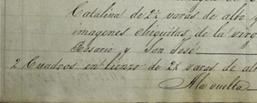 Catalina de 2½ varas de alto y
imagenes chiquitas de la virg
Rosario y San José
2 Cuadros en lienzo de 2½ varas de al
A la vuelta